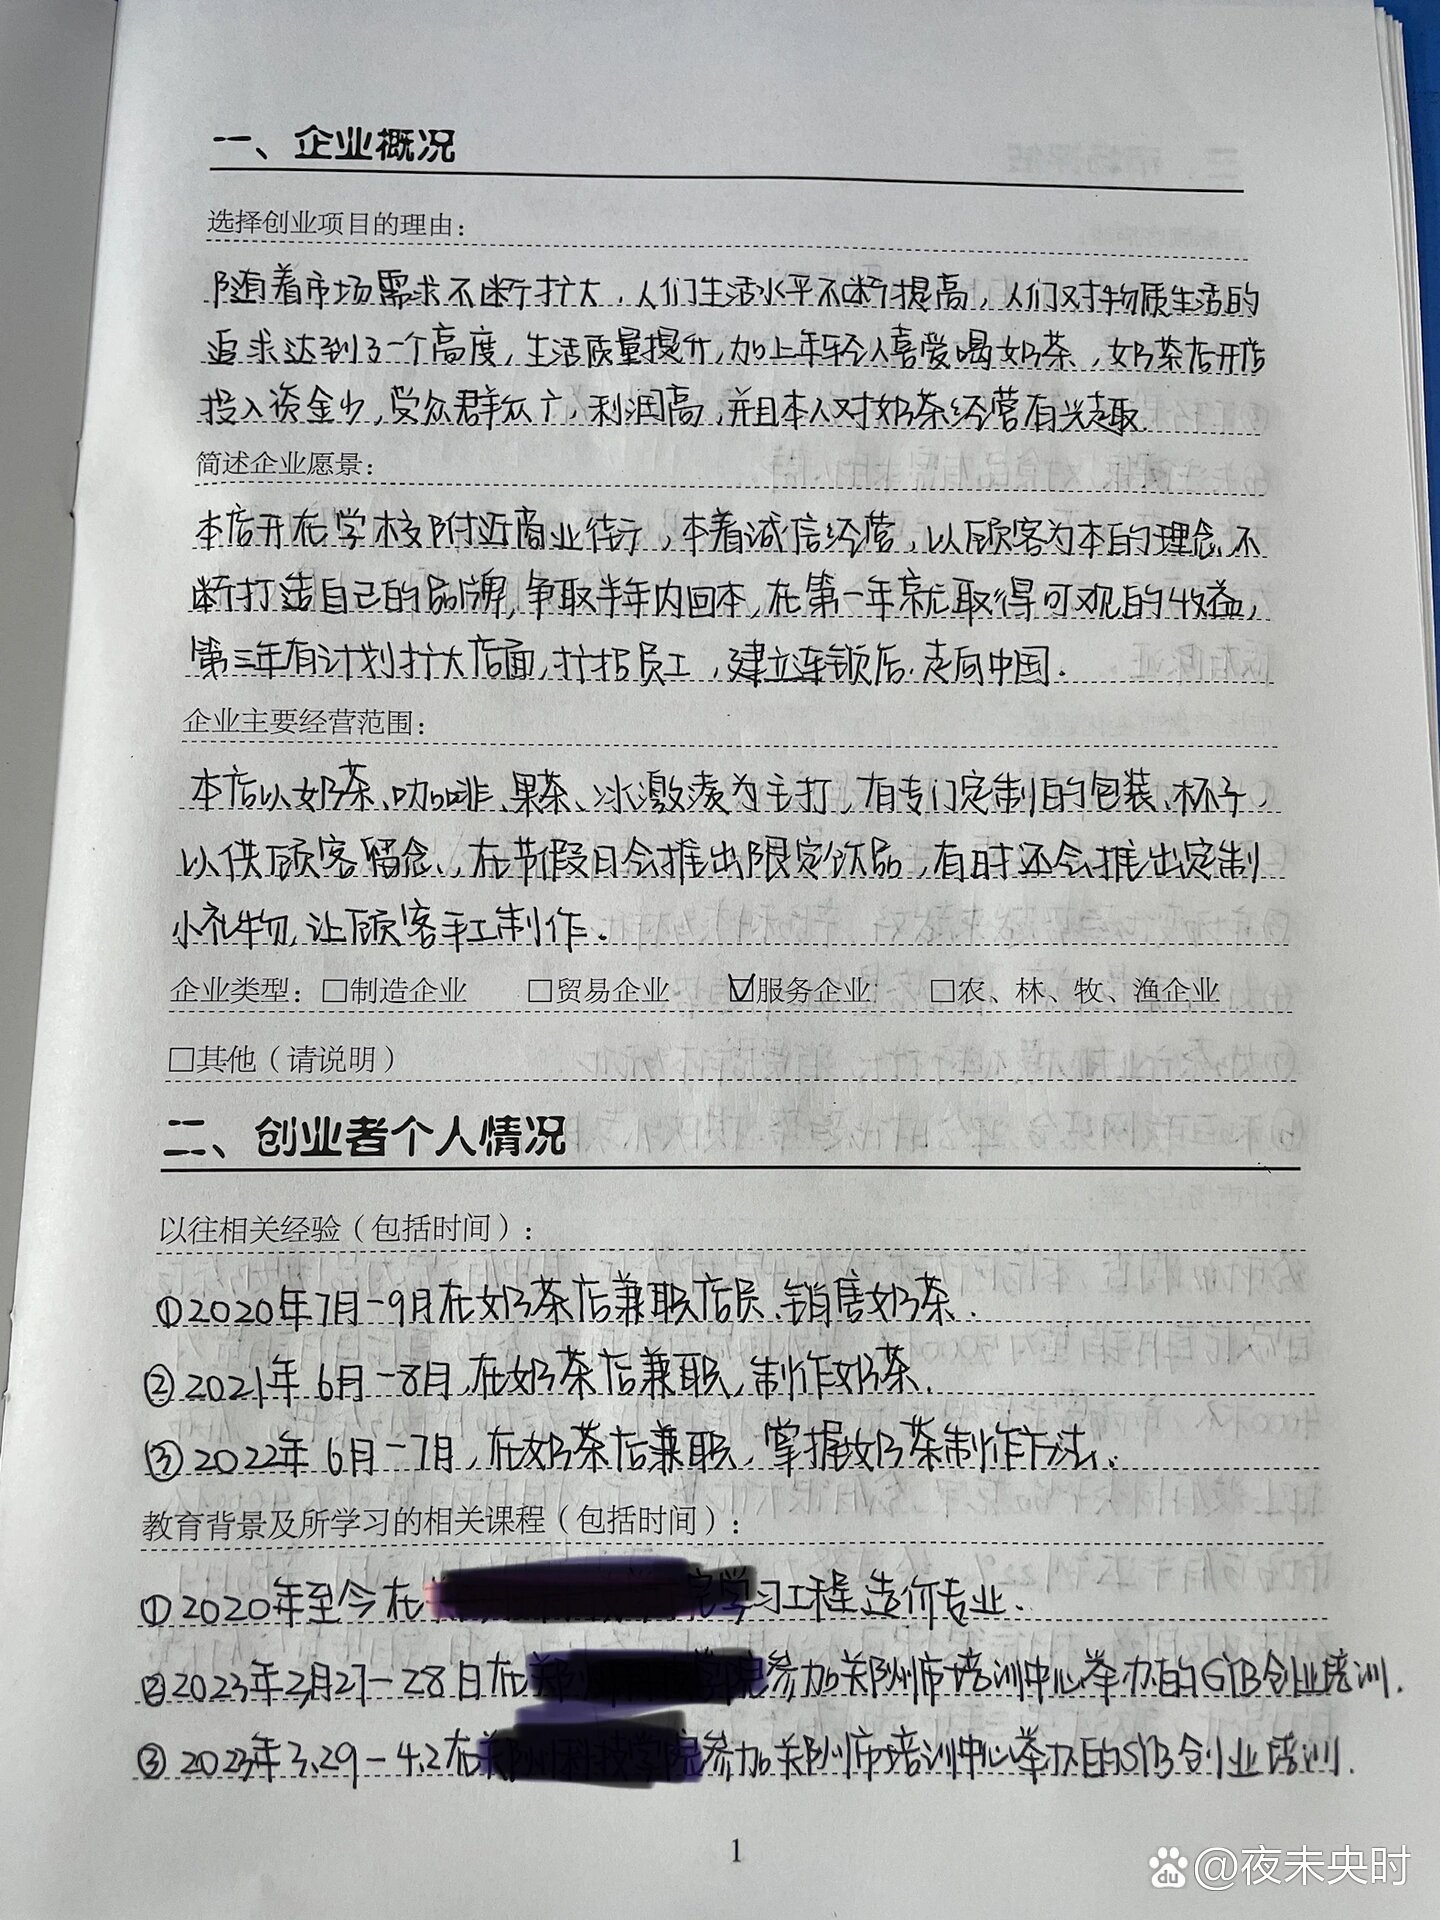 一、企业概况
选择创业项目的理由：
随着市场需求不断扩大，人们生活水平不断提高，人们对物质生活的
追求达到了一个高度，生活质量提升，加上年轻人喜爱喝奶茶，奶茶店开店
投入资金少，受众群众广，利润高，并且本人对奶茶经营有兴趣.
简述企业愿景：
本店开在学校附近商业街，本着诚信经营，以顾客为本的理念、不
断打造自己的品牌，争取半年内回本，在第一年就取得可观的收益，
第三年有计划扩大店面，扩招员工，建立连锁店.走向中国.
企业主要经营范围：
本店以奶茶、咖啡、果茶、冰激凌为主打，有专门定制的包装、杯子，
以供顾客留念，在节假日会推出限定饮品，有时还会推出定制
小礼物，让顾客手工制作.
企业类型：□制造企业 □贸易企业 ☑服务企业 □农、林、牧、渔企业
□其他（请说明）
二、创业者个人情况
以往相关经验（包括时间）：
①2020年7月-9月在奶茶店兼职店员、销售奶茶.
②2021年6月-8月，在奶茶店兼职，制作奶茶.
③2022年6月-7月，在奶茶店兼职，掌握奶茶制作方法.
教育背景及所学习的相关课程（包括时间）：
①2020年至今在 学习工程造价专业.
②2023年2月27-28日在 参加郑州市培训中心举办的GYB创业培训.
③2023年3.29-4.2在 参加郑州市培训中心举办的SYB创业培训.
1
du @夜未央时